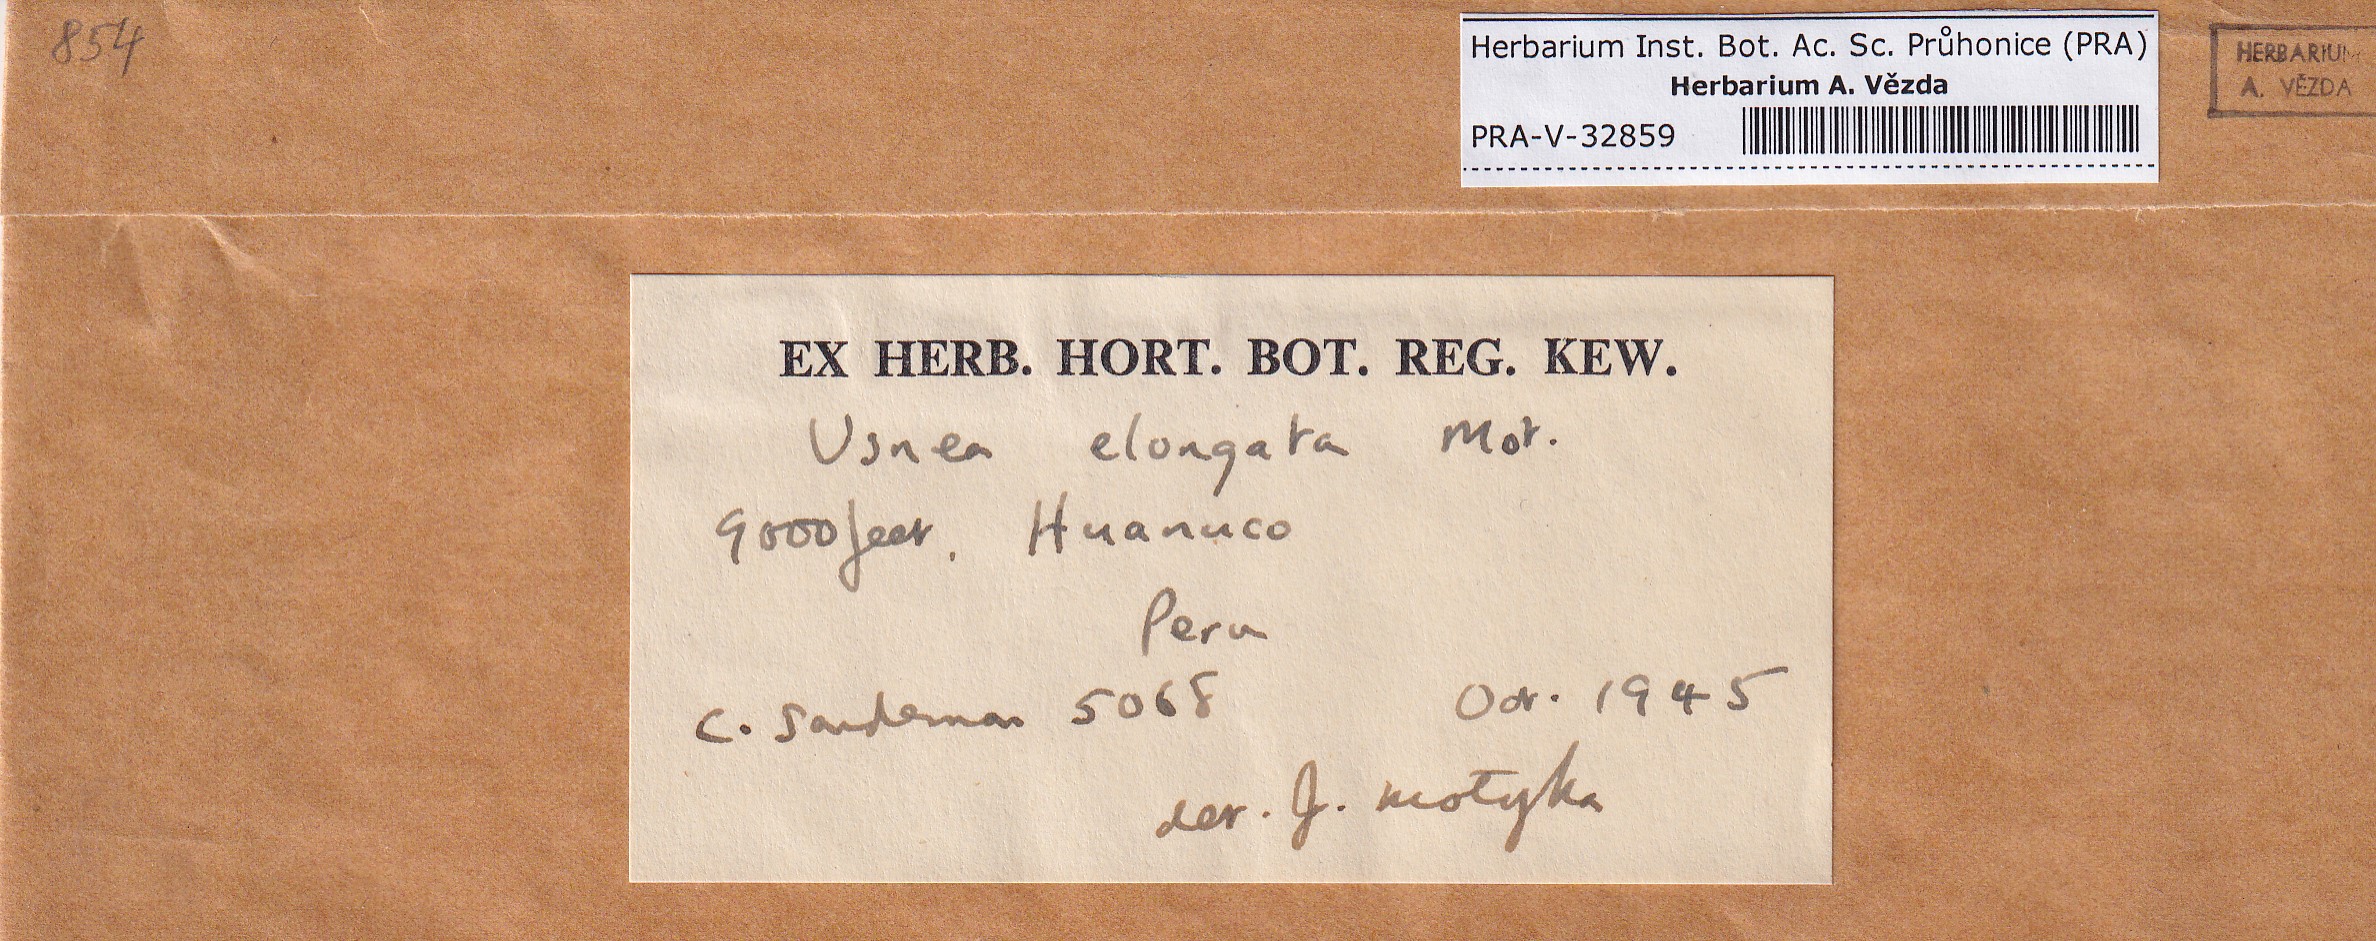 854
Herbarium Inst. Bot. Ac. Sc. Průhonice (PRA)
Herbarium A. Vězda
PRA-V-32859
HERBARIUM
A. VĚZDA
EX HERB. HORT. BOT. REG. KEW.
Usnea elongata Mot.
9000 feet. Huanuco
Peru
C. Sandeman 5068 Oct. 1945
det. J. Motyka